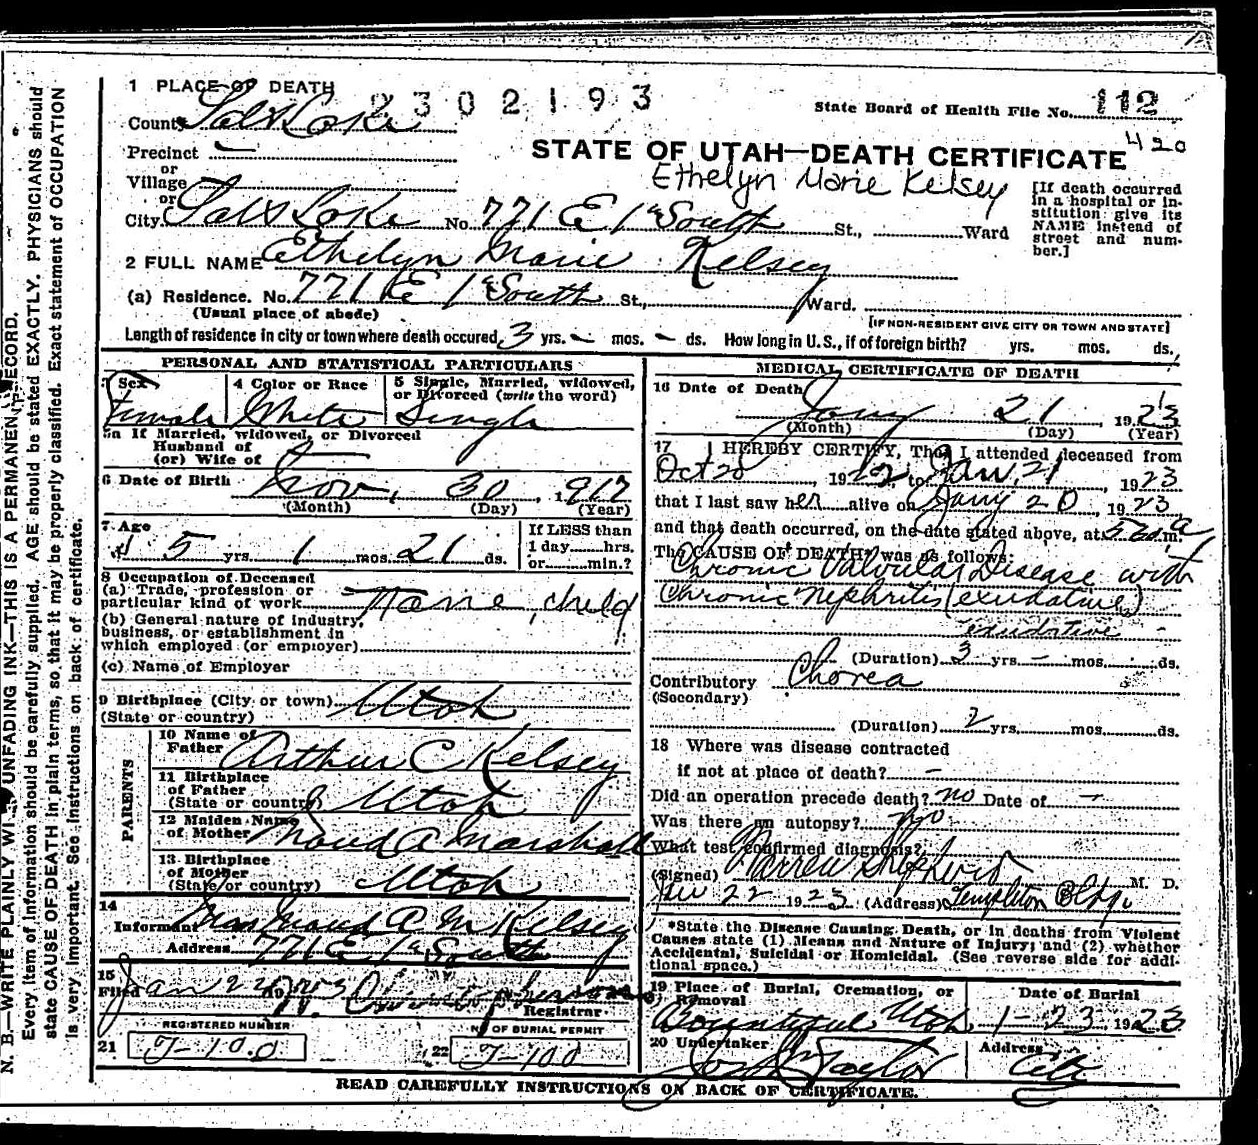 1 PLACE OF DEATH
2302193
State Board of Health File No. 112
County Salt Lake
420
Precinct —
STATE OF UTAH—DEATH CERTIFICATE
or
Village
Ethelyn Marie Kelsey
or
City Salt Lake No. 771 E 1st South St., Ward
[If death occurred in a hospital or institution give its NAME instead of street and number.]
2 FULL NAME Ethelyn Marie Kelsey
(a) Residence. No. 771 E 1st South St., Ward.
(Usual place of abode)
[IF NON-RESIDENT GIVE CITY OR TOWN AND STATE]
Length of residence in city or town where death occured 3 yrs. — mos. — ds. How long in U.S., if of foreign birth? yrs. mos. ds.
PERSONAL AND STATISTICAL PARTICULARS
3 Sex
Female
4 Color or Race
White
5 Single, Married, widowed, or Divorced (write the word)
Single
5a If Married, widowed, or Divorced
Husband of
(or) Wife of —
6 Date of Birth Nov. 30, 1917
(Month) (Day) (Year)
7 Age
5 yrs. 1 mos. 21 ds.
If LESS than
1 day hrs.
or min.?
8 Occupation of Deceased
(a) Trade, profession or
particular kind of work None, child
(b) General nature of industry,
business, or establishment in
which employed (or employer)
(c) Name of Employer
9 Birthplace (City or town) Utah
(State or country)
PARENTS
10 Name of
Father Arthur C Kelsey
11 Birthplace
of Father
(State or country) Utah
12 Maiden Name
of Mother Maud A Marshall
13 Birthplace
of Mother
(State or country) Utah
14
Informant Mrs Maud A M Kelsey
Address 771 E 1st South
15
Filed Jan 22 1923
Registrar
REGISTERED NUMBER
21 J-100
No of BURIAL PERMIT
22 J-100
MEDICAL CERTIFICATE OF DEATH
16 Date of Death
Jany 21 1923
(Month) (Day) (Year)
17 I HEREBY CERTIFY, That I attended deceased from
Oct 20, 1922 to Jan. 21, 1923
that I last saw her alive on Jany 20, 1923
and that death occurred, on the date stated above, at 5 a m.
The CAUSE OF DEATH* was as follows:
Chronic Valvular Disease with
Chronic Nephritis (exudative)
exudative
(Duration) 3 yrs. — mos. ds.
Contributory Chorea
(Secondary)
(Duration) 2 yrs. mos. ds.
18 Where was disease contracted
if not at place of death? —
Did an operation precede death? no Date of —
Was there an autopsy? no
What test confirmed diagnosis?
(Signed) Warren Shepherd M. D.
Jan 22 1923 (Address) Templeton Bldg.
*State the Disease Causing Death, or in deaths from Violent
Causes state (1) Means and Nature of Injury; and (2) whether
Accidental, Suicidal or Homicidal. (See reverse side for addi-
tional space.)
19 Place of Burial, Cremation, or
Removal
Bountiful Utah
Date of Burial
1-23, 1923
20 Undertaker
Jos Wm Taylor
Address
City
READ CAREFULLY INSTRUCTIONS ON BACK OF CERTIFICATE.
N. B.—WRITE PLAINLY WITH UNFADING INK—THIS IS A PERMANENT RECORD.
Every item of information should be carefully supplied. AGE should be stated EXACTLY. PHYSICIANS should
state CAUSE OF DEATH in plain terms, so that it may be properly classified. Exact statement of OCCUPATION
is very important. See instructions on back of certificate.